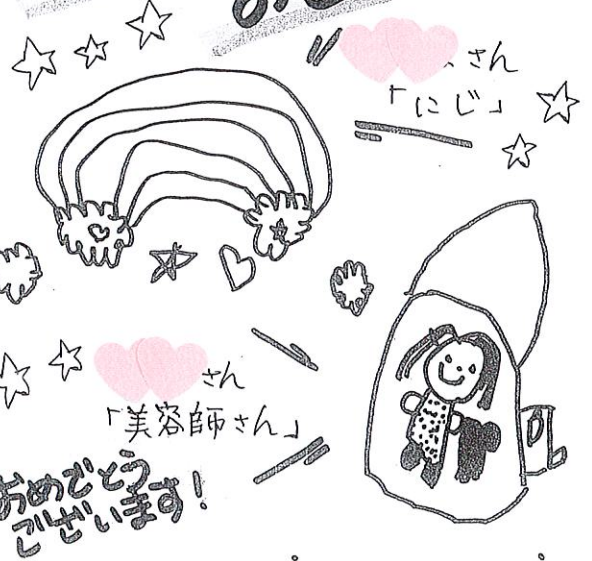 さん
「にじ」
さん
「美容師さん」
おめでとう
ございます！